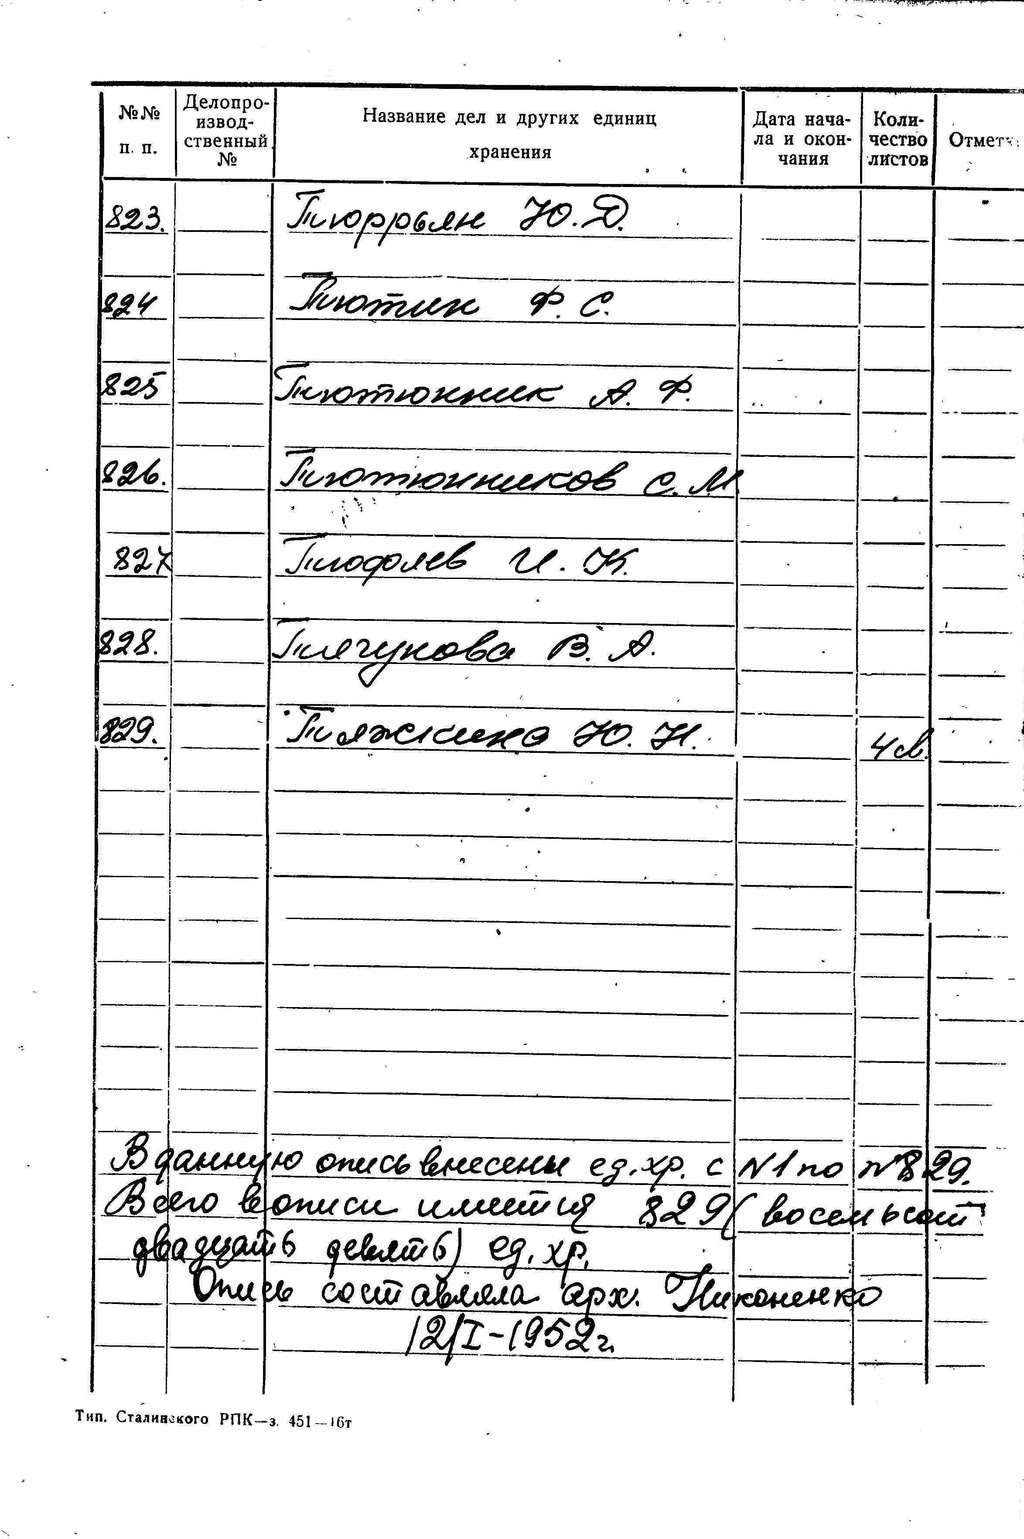 №№ п. п. Делопро-изводственный № Название дел и других единиц хранения Дата начала и окончания Количество листов Отметк
823. Тюррьян Ю. Д.
824 Тютин Ф. С.
825 Тютюнник А. Ф.
826. Тютюнников С. М.
827 Тюфяев И. К.
828. Тягунова В. А.
829. Тяжкина Ю. Н. 4 л.
В данную опись внесены ед. хр. с №1 по №829.
Всего в описи имеется 829 (восемьсот
двадцать девять) ед. хр.
Опись составляла арх. Никоненко
12/I-1952 г.
Тип. Сталинского РПК—з. 451—16т